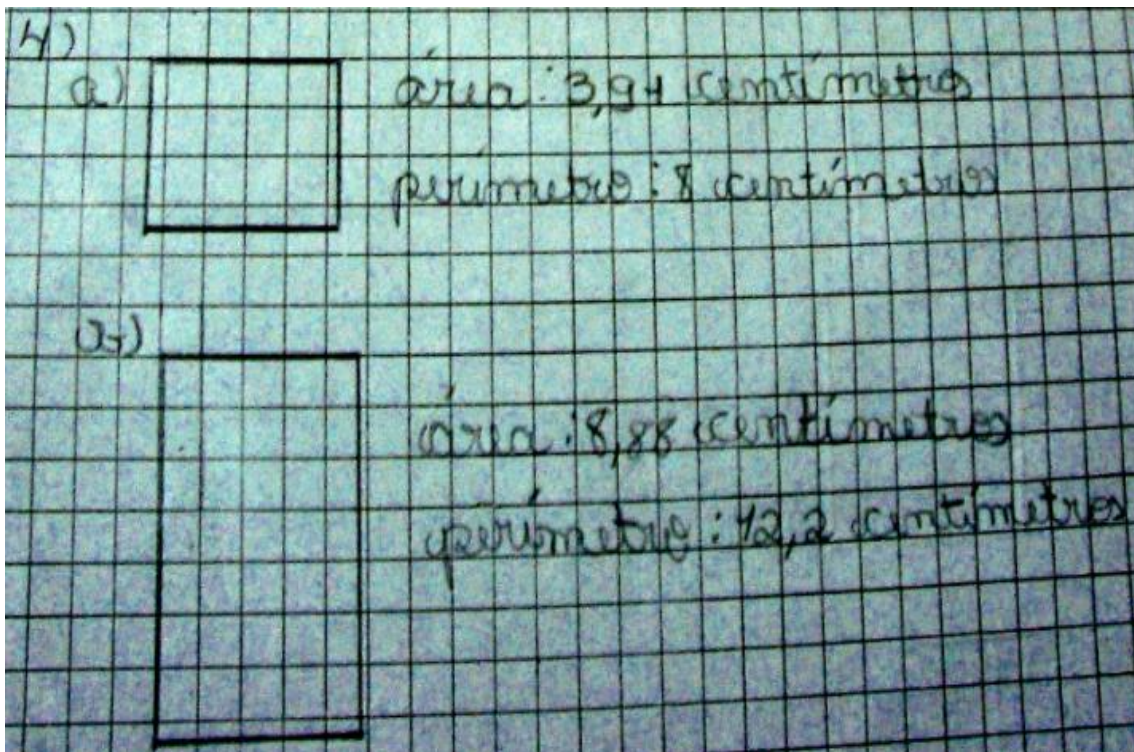 4)
a) área: 3,91 centímetros
perímetro: 8 centímetros
b)
área: 8,88 centímetros
perímetro: 12,2 centímetros